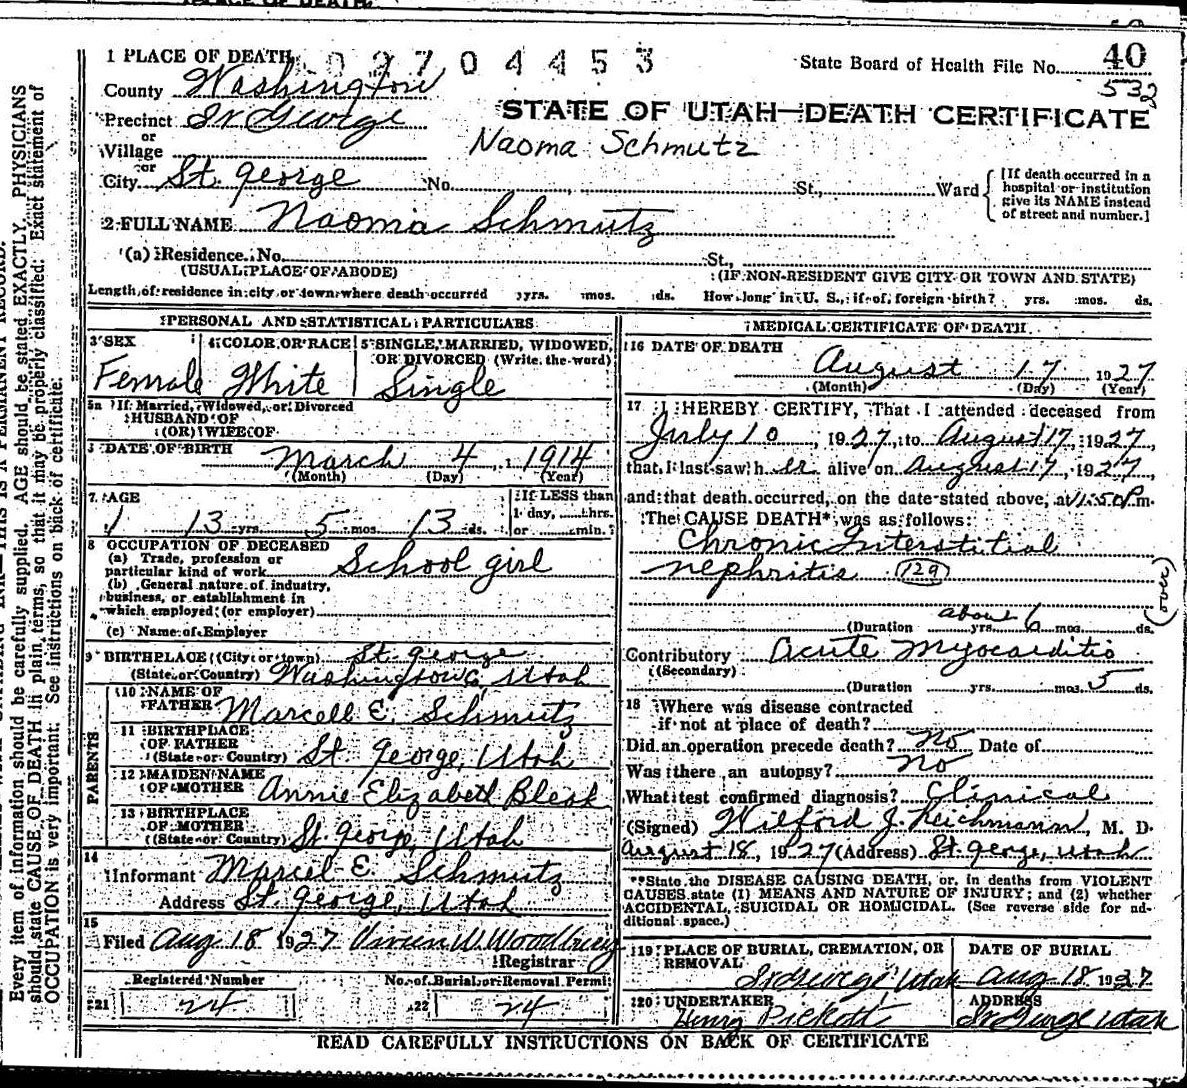 PLACE OF DEATH
1 PLACE OF DEATH 2704453
State Board of Health File No. 40
532
County Washington
STATE OF UTAH—DEATH CERTIFICATE
Precinct St George
or
Village
Naoma Schmutz
or
City St. George No. St., Ward
[If death occurred in a
hospital or institution
give its NAME instead
of street and number.]
2 FULL NAME Naoma Schmutz
(a) Residence. No. St.,
(USUAL PLACE OF ABODE) (IF NON-RESIDENT GIVE CITY OR TOWN AND STATE)
Length of residence in city or town where death occurred yrs. mos. ds. How long in U. S., if of foreign birth? yrs. mos. ds.
PERSONAL AND STATISTICAL PARTICULARS
3 SEX 4 COLOR OR RACE 5 SINGLE, MARRIED, WIDOWED,
OR DIVORCED (Write the word)
Female White Single
5a If Married, Widowed, or Divorced
HUSBAND OF
(OR) WIFE OF
DATE OF BIRTH March 4 1914
(Month) (Day) (Year)
7. AGE If LESS than
1 day, hrs.
13 yrs. 5 mos. 13 ds. or min.
8 OCCUPATION OF DECEASED
(a) Trade, profession or
particular kind of work School girl
(b) General nature of industry,
business, or establishment in
which employed (or employer)
(c) Name of Employer
9 BIRTHPLACE (City or town) St. George
(State or Country) Washington Co, Utah
PARENTS
10 NAME OF
FATHER Marcell E. Schmutz
11 BIRTHPLACE
OF FATHER
(State or Country) St. George, Utah
12 MAIDEN NAME
OF MOTHER Annie Elizabeth Bleak
13 BIRTHPLACE
OF MOTHER
(State or Country) St. George, Utah
14
Informant Marcel E Schmutz
Address St. George, Utah
15
Filed Aug 18 1927 Vivien W. Woodbury
Registrar
Registered Number No. of Burial or Removal Permit
21 24 22 24
MEDICAL CERTIFICATE OF DEATH
16 DATE OF DEATH
August 17, 1927
(Month) (Day) (Year)
17 I HEREBY CERTIFY, That I attended deceased from
July 10, 1927, to August 17, 1927,
that I last saw her alive on August 17, 1927,
and that death occurred, on the date stated above, at 11:50 P.m.
The CAUSE DEATH* was as follows:
Chronic Interstitial
nephritis 129
(over)
(Duration about yrs. 6 mos. ds.
Contributory Acute Myocarditis
(Secondary)
(Duration yrs. mos. 5 ds.
18 Where was disease contracted
if not at place of death?
Did an operation precede death? No Date of
Was there an autopsy? No
What test confirmed diagnosis? Clinical
(Signed) Wilford J. Reichmann, M. D.
August 18, 1927 (Address) St. George, Utah
*State the DISEASE CAUSING DEATH, or, in deaths from VIOLENT
CAUSES state (1) MEANS AND NATURE OF INJURY; and (2) whether
ACCIDENTAL, SUICIDAL OR HOMICIDAL. (See reverse side for ad-
ditional space.)
19 PLACE OF BURIAL, CREMATION, OR
REMOVAL DATE OF BURIAL
St George Utah Aug 18 1927
20 UNDERTAKER ADDRESS
Henry Pickett St George Utah
READ CAREFULLY INSTRUCTIONS ON BACK OF CERTIFICATE
THIS IS A PERMANENT RECORD.
Every item of information should be carefully supplied. AGE should be stated EXACTLY. PHYSICIANS
should state CAUSE OF DEATH in plain terms, so that it may be properly classified. Exact statement of
OCCUPATION is very important. See instructions on back of certificate.